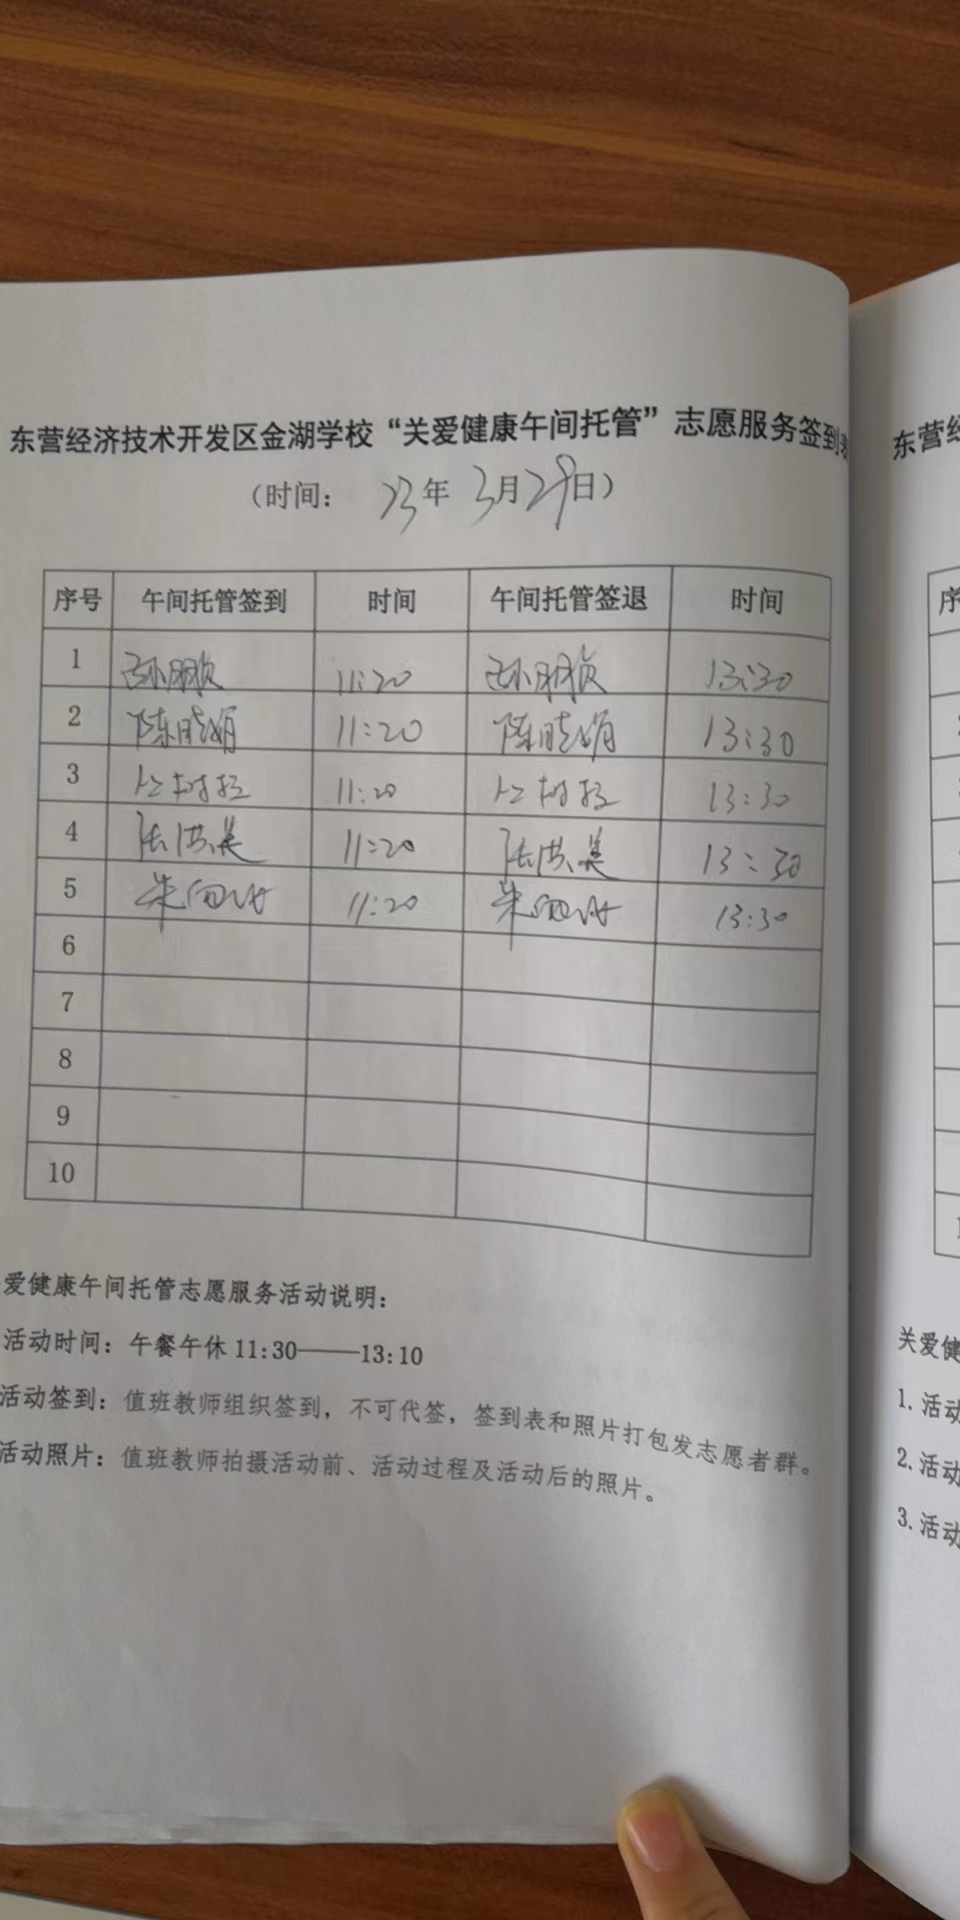 东营经济技术开发区金湖学校“关爱健康午间托管”志愿服务签到表
（时间： 23年 3月29日）
序号 午间托管签到 时间 午间托管签退 时间
1 孙朋祯 11:20 孙朋祯 13:30
2 陈晓娟 11:20 陈晓娟 13:30
3 11:20 13:30
4 11:20 13:30
5 朱 11:20 朱 13:30
6
7
8
9
10
爱健康午间托管志愿服务活动说明：
活动时间：午餐午休11:30——13:10
活动签到：值班教师组织签到，不可代签，签到表和照片打包发志愿者群。
活动照片：值班教师拍摄活动前、活动过程及活动后的照片。
东营经
序
关爱健
1.活动
2.活动
3.活动